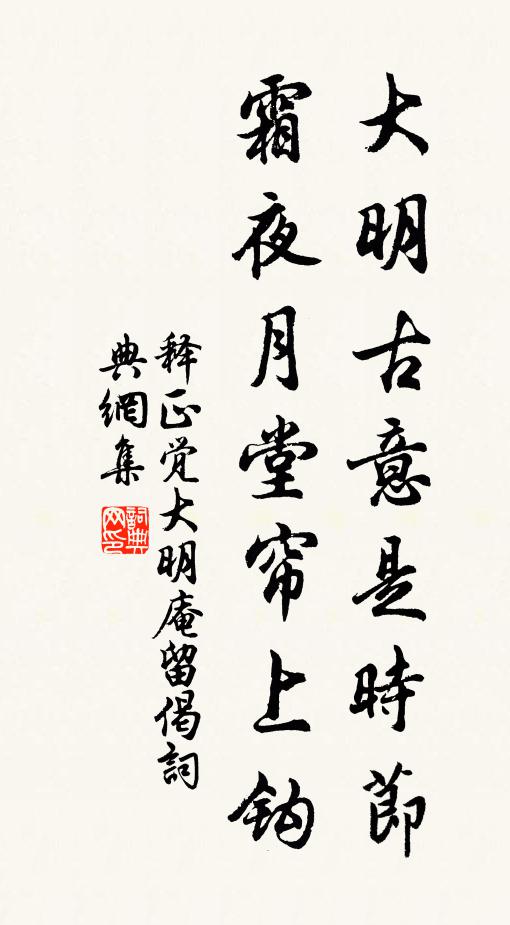 大明古意是時節
霜夜月堂帘上鈎
释正觉大明庵留偈詞
典網集
詞典
网印